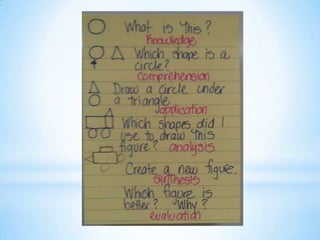 What is this?
Knowledge
Which shape is a
circle?
comprehension
Draw a circle under
a triangle
application
Which shapes did I
use to draw this
figure? analysis
Create a new figure.
synthesis
Which figure is
better? Why?
evaluation